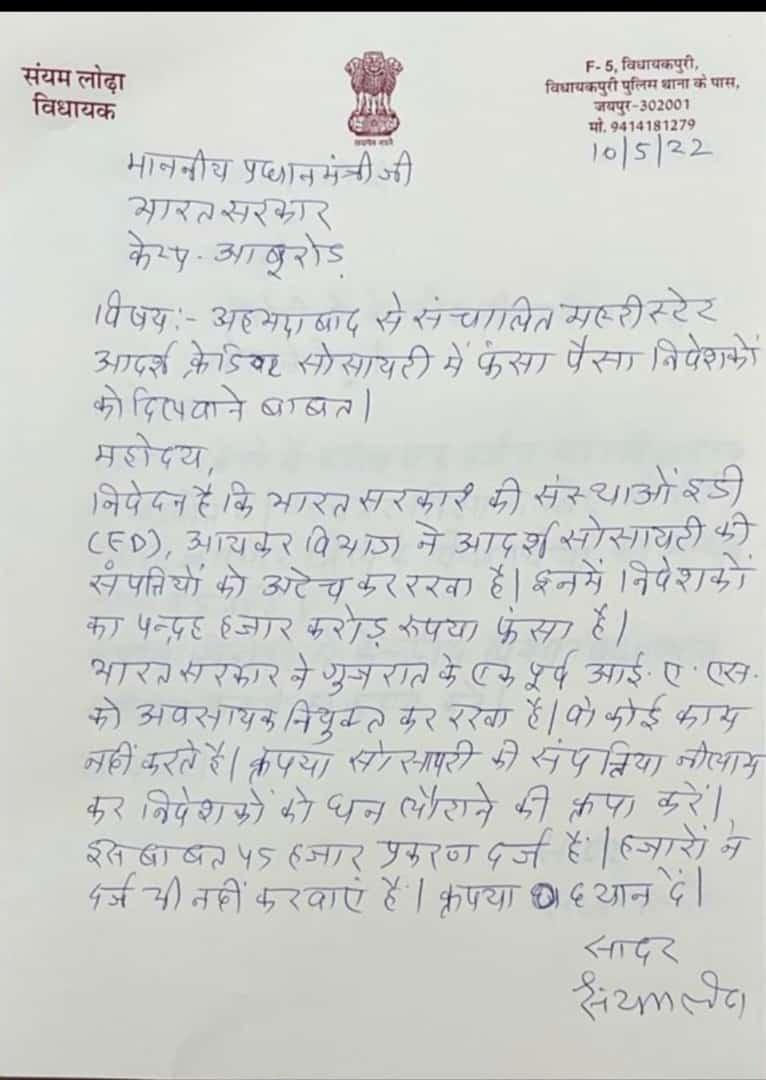 संयम लोढ़ा
विधायक
सत्यमेव जयते
F-5, विधायकपुरी,
विधायकपुरी पुलिस थाना के पास,
जयपुर-302001
मो. 9414181279
10/5/22
माननीय प्रधानमंत्री जी
भारत सरकार
केम्प - आबूरोड
विषय:- अहमदाबाद से संचालित मल्टी स्टेट
आदर्श क्रेडिट सोसायटी में फंसा पैसा निवेशकों
को दिलवाने बाबत।
महोदय,
निवेदन है कि भारत सरकार की संस्थाओं इडी
(ED), आयकर विभाग ने आदर्श सोसायटी की
संपत्तियों को अटेच कर रखा है। इनमें निवेशकों
का पन्द्रह हजार करोड़ रूपया फंसा है।
भारत सरकार ने गुजरात के एक पूर्व आई. ए. एस.
को अवसायक नियुक्त कर रखा है। वो कोई कार्य
नहीं करते है। कृपया सोसायटी की संपत्तिया नीलाम
कर निवेशकों को धन लौटाने की कृपा करें।
इस बाबत 45 हजार प्रकरण दर्ज हैं। हजारों ने
दर्ज भी नहीं करवाएं हैं। कृपया ध्यान दें।
सादर
संयम लोढ़ा